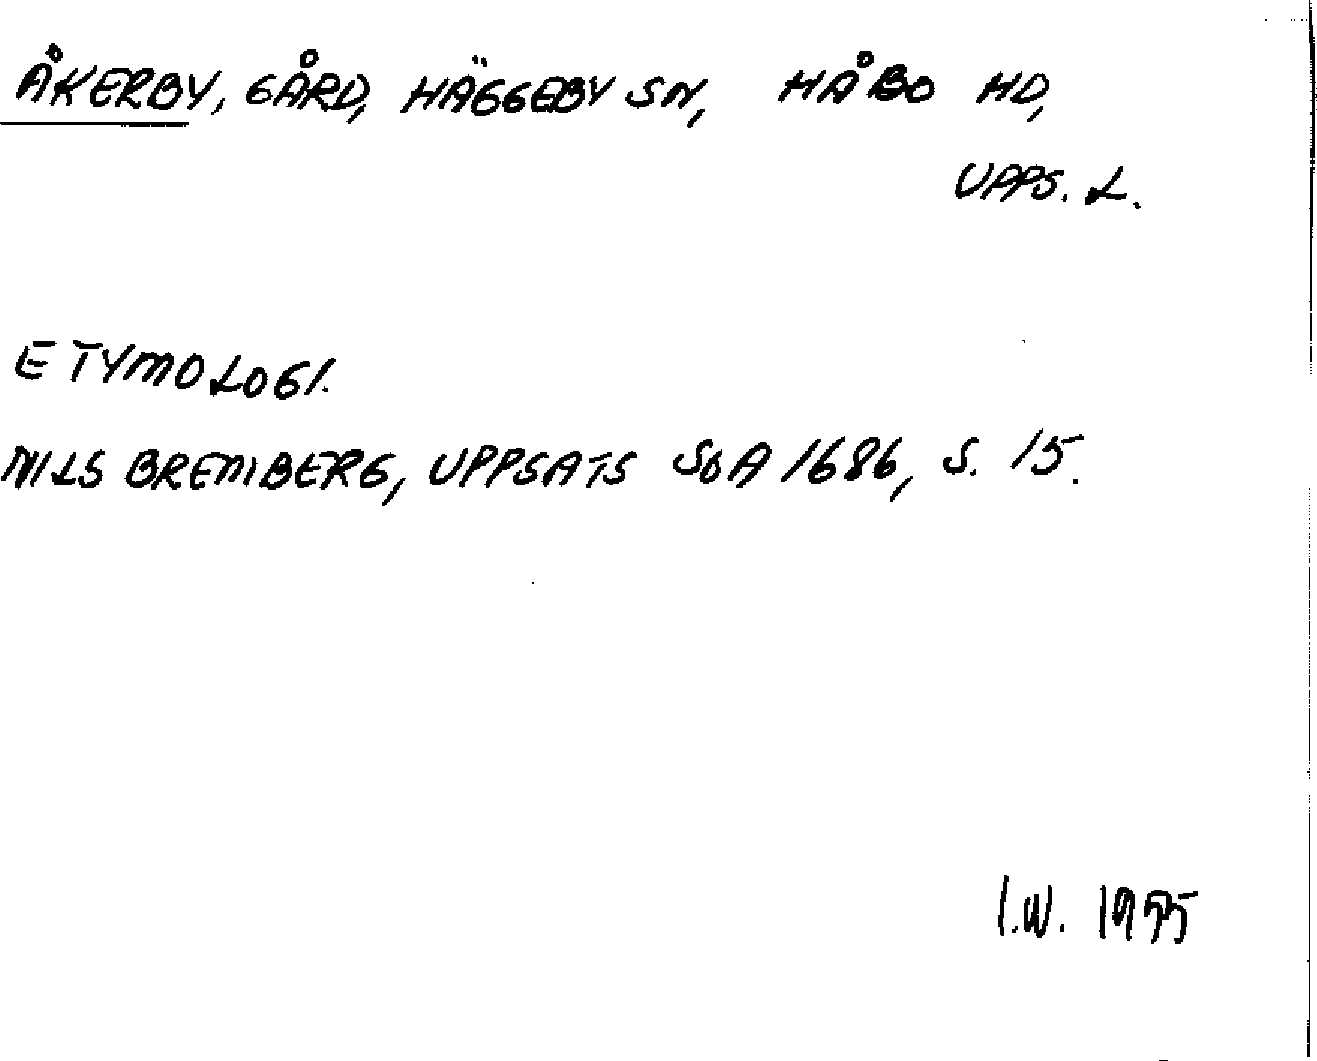 ÅKERBY, GÅRD, HÄGGEBY SN, HÅBO HD,
UPPS. L.
ETYMOLOGI.
NILS BREMBERG, UPPSATS SOA 1686, S. 15.
I.W. 1955